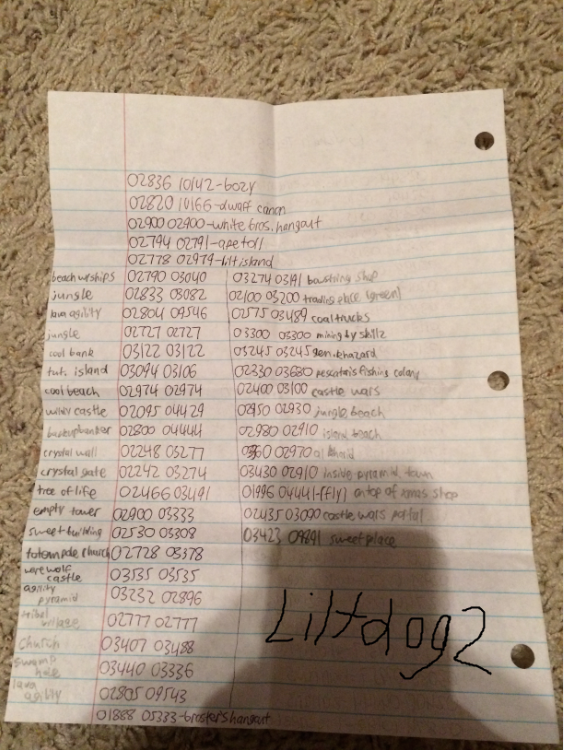 02836 10142-bozy
02820 10166-dwarf canon
02900 02900-white bros. hangout
02794 02791-ape toll
02778 02979-lilt island
beach w/ ships 02790 03040 03274 03191 bowstring shop
jungle 02833 03082 02100 03200 trading place (green)
lava agility 02804 09546 02575 03489 coal trucks
jungle 02727 02727 03300 03300 mining by skillz
cool bank 03122 03122 03245 03245 gen. hazard
tut. island 03094 03106 02330 03680 pescatoris fishing colony
cool beach 02974 02974 02400 03100 castle wars
castle 02095 04429 02950 02930 jungle beach
02800 04444 02980 02910 island beach
crystal wall 02248 03277 02970 al kharid
crystal gate 02242 03274 03430 02910 inside pyramid town
tree of life 02466 03491 01996 04441-(fly) on top of xmas shop
empty tower 02900 03333 02435 03090 castle wars portal
sweet building 02530 03308 03423 sweet place
totem pole church 02728 03378
werewolf castle 03535 03535
agility pyramid 03232 02896
tribal village 02777 02777
church 03407 03488
swamp hole 03440 03336
lava agility 02805 09543
01888 05333-brosters hangout
Liltdog2